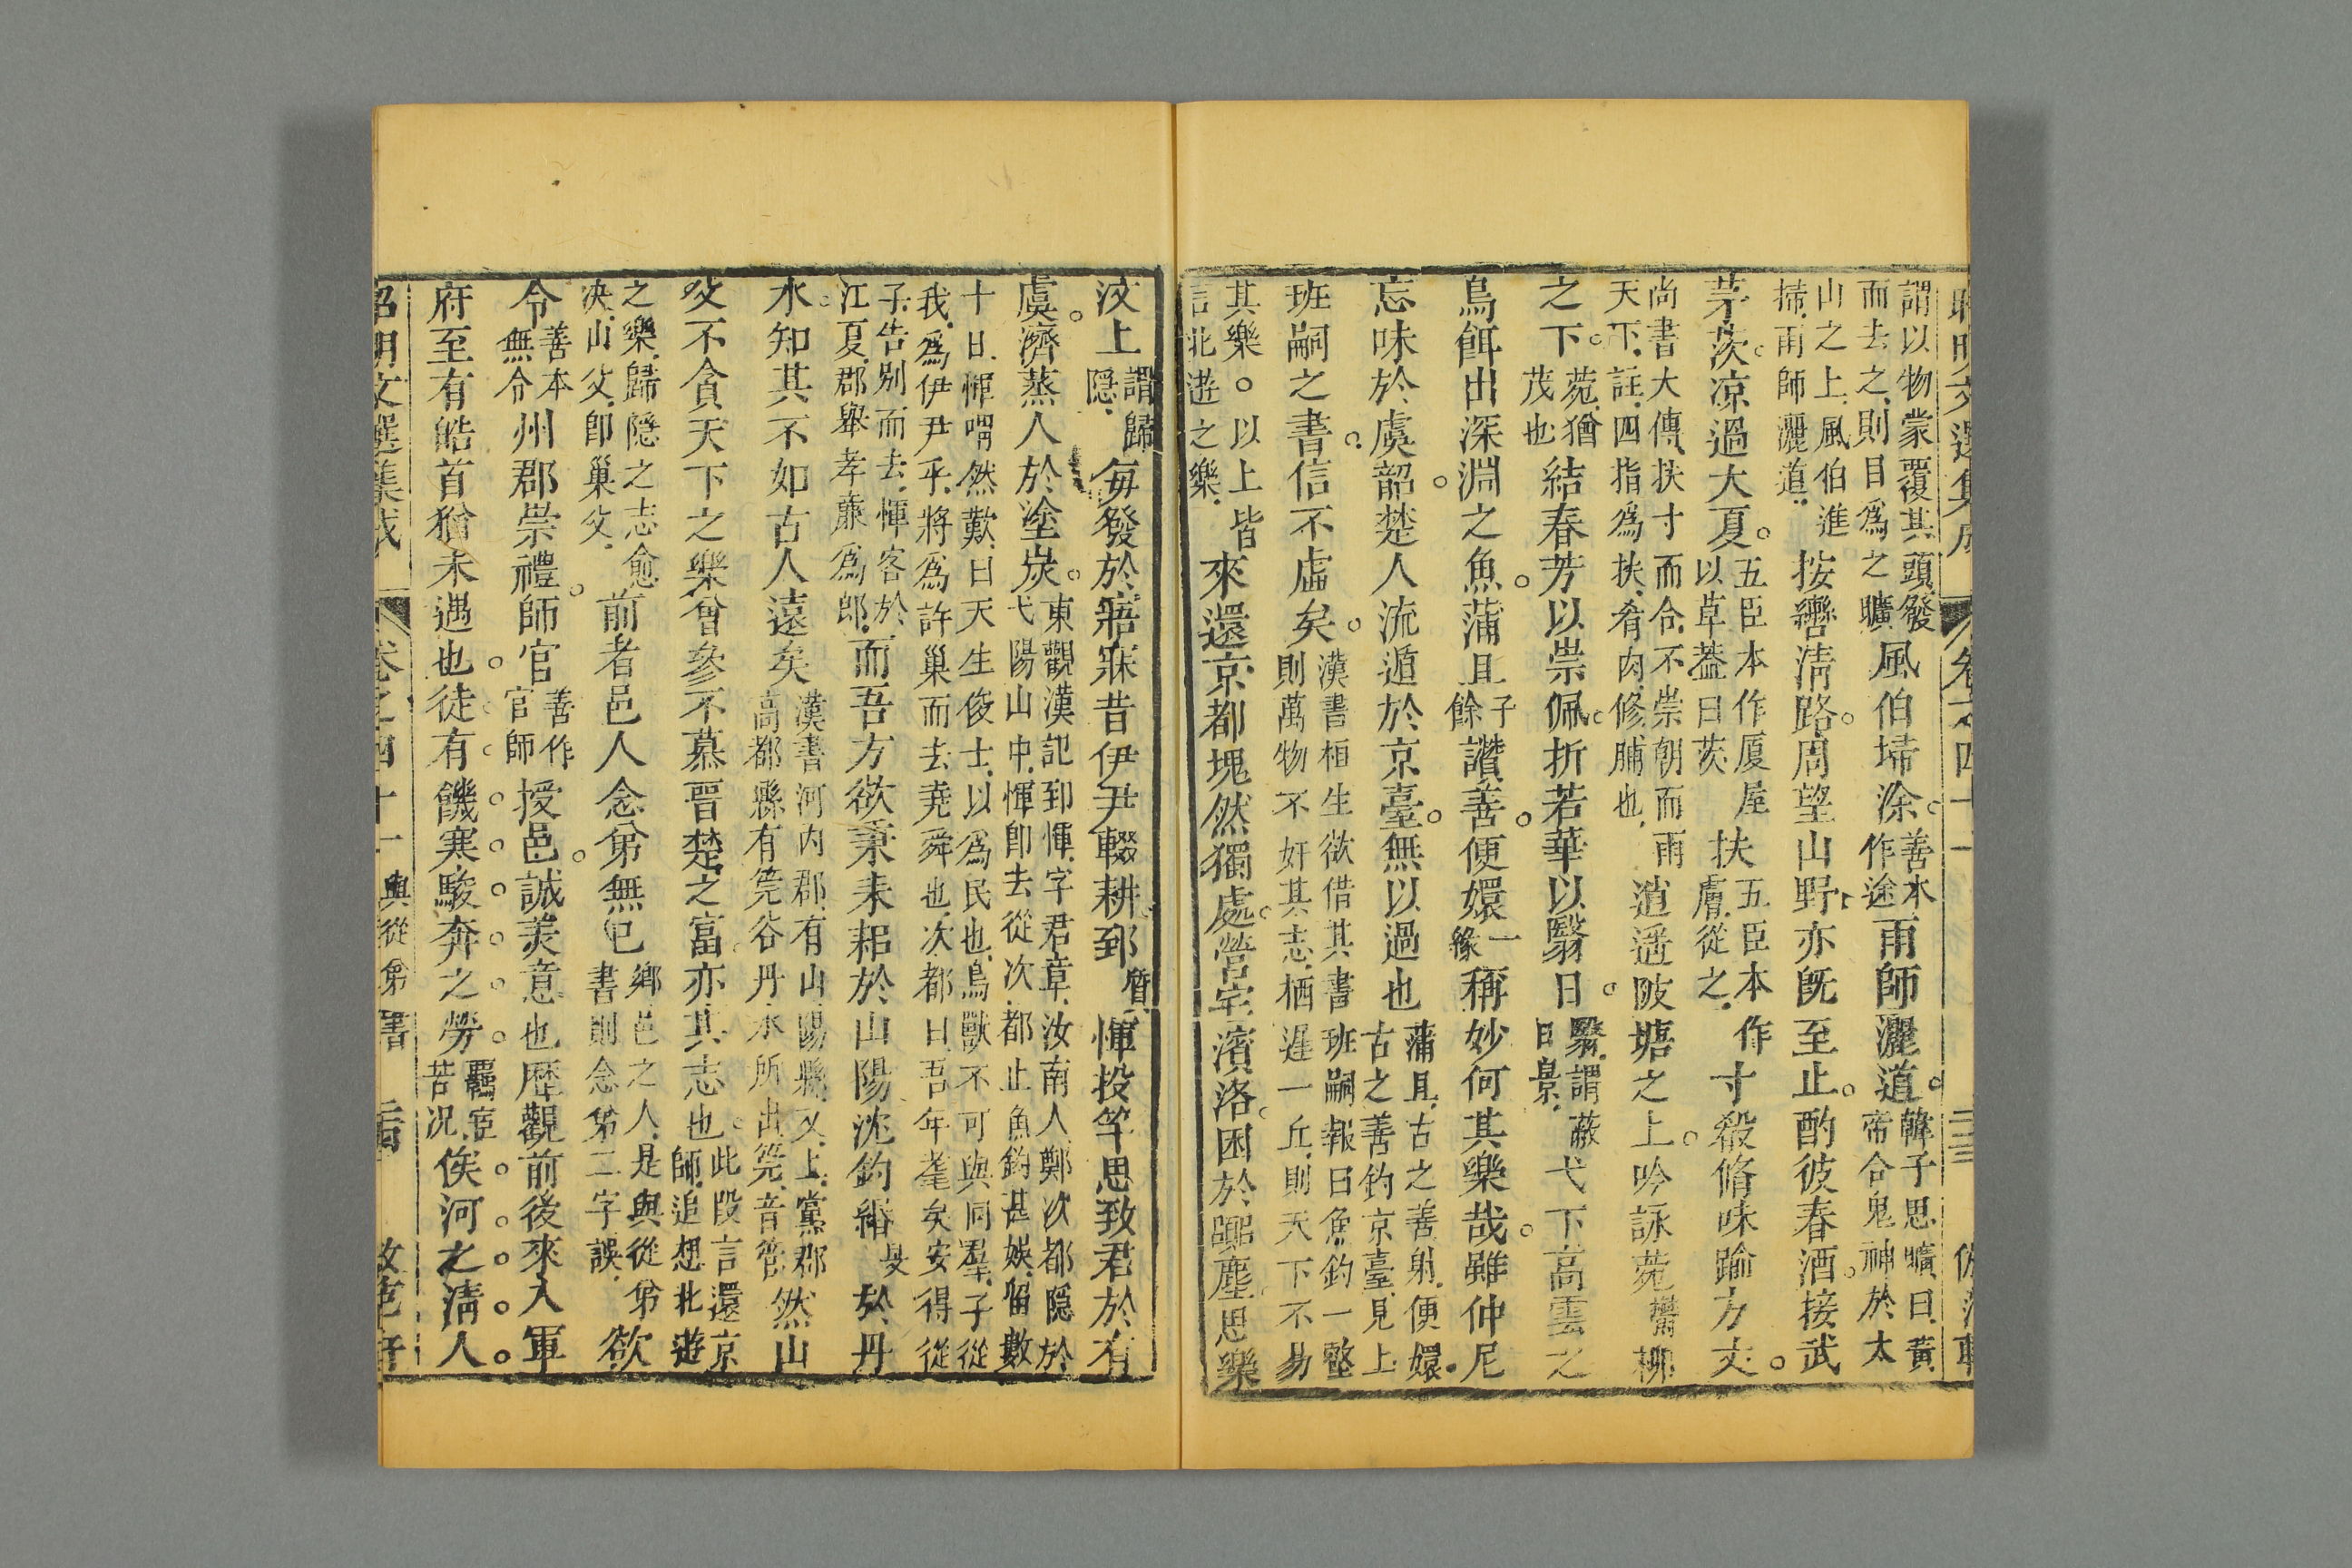 謂以物蒙覆其頭發而去之則目爲之曠風伯埽涂善本作途雨師灑道韓子思曠曰黃帝合鬼神於太
山之上風伯進掃雨師灑道按轡淸路周望山野亦旣至止酌彼春酒接武
茅茨凉過大夏五臣本作厦屋以草葢曰茨扶五臣本作膚從之寸殽脩味踰方丈
尚書大傳扶寸而合不崇朝而雨天下註四指爲扶肴肉修脯也逍遥陂塘之上吟詠菀鬱柳
之下菀猶茂也結春芳以崇佩折若華以翳日翳謂蔽日景弋下高雲之
鳥餌出深淵之魚蒲且子餘讚善便嬛一緣稱妙何其樂哉雖仲尼
忘味於虞韶楚人流遁於京臺無以過也蒲且古之善射便嬛古之善釣京臺見上
班嗣之書信不虛矣漢書桓生欲借其書班嗣報曰魚釣一壑則萬物不奸其志栖遲一丘則天下不易
其樂以上皆言北遊之樂來還京都塊然獨處營宅濱洛困於囂塵思樂
汶上謂歸隠每發於寤寐昔伊尹輟耕郅質惲投竿思致君於有
虞濟蒸人於塗炭東觀漢記郅惲字君章汝南人鄭次都隠於弋陽山中惲卽去從次都止魚釣甚娛留數
十日惲喟然歎曰天生俊士以爲民也鳥獸不可與同羣子從我爲伊尹乎將爲許巢而去堯舜也次都曰吾年耄矣安得從
子告别而去惲客於江夏郡舉孝廉爲郎而吾方欲秉耒耜於山陽沈鈎緡旻於丹
水知其不如古人遠矣漢書河内郡有山陽縣又上黨郡高都縣有筦谷丹水所出筦音管然山
父不貪天下之樂曾參不慕晉楚之富亦其志也此段言還京師追想北遊
之樂歸隠之志愈决山父卽巢父前者邑人念弟無已鄉邑之人是與從弟書則念弟二字誤欲
令善本無令州郡崇禮師官善作官師授邑誠美意也歷觀前後來入軍
府至有皓首猶未遇也徒有饑寒駿奔之勞苦况俟河之淸人
昭明文選集成 卷之四十一 與從弟書